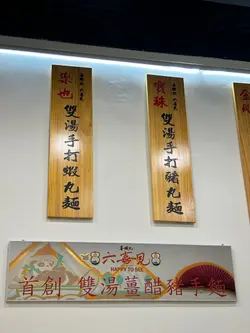 樂也
雙湯手打蝦丸麵
寶珠
雙湯手打豬丸麵
六喜見
HAPPY TO SEE
首創 雙湯薑醋豬手麵